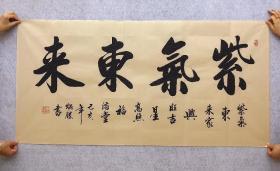 紫氣東来
紫氣
東
来家
興
旺吉
星
高照
福
滿堂
己亥
年
書